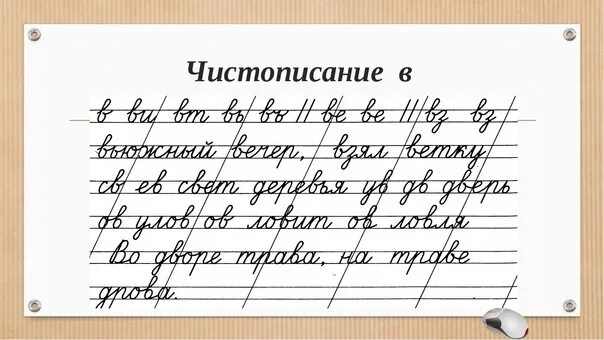 Чистописание в
в ви вт вь въ || ве ве || вз вз
вьюжный вечер, взял ветку
св ев свет деревья ув дв дверь
ов улов ов ловит ов ловля
Во дворе трава, на траве
дрова.